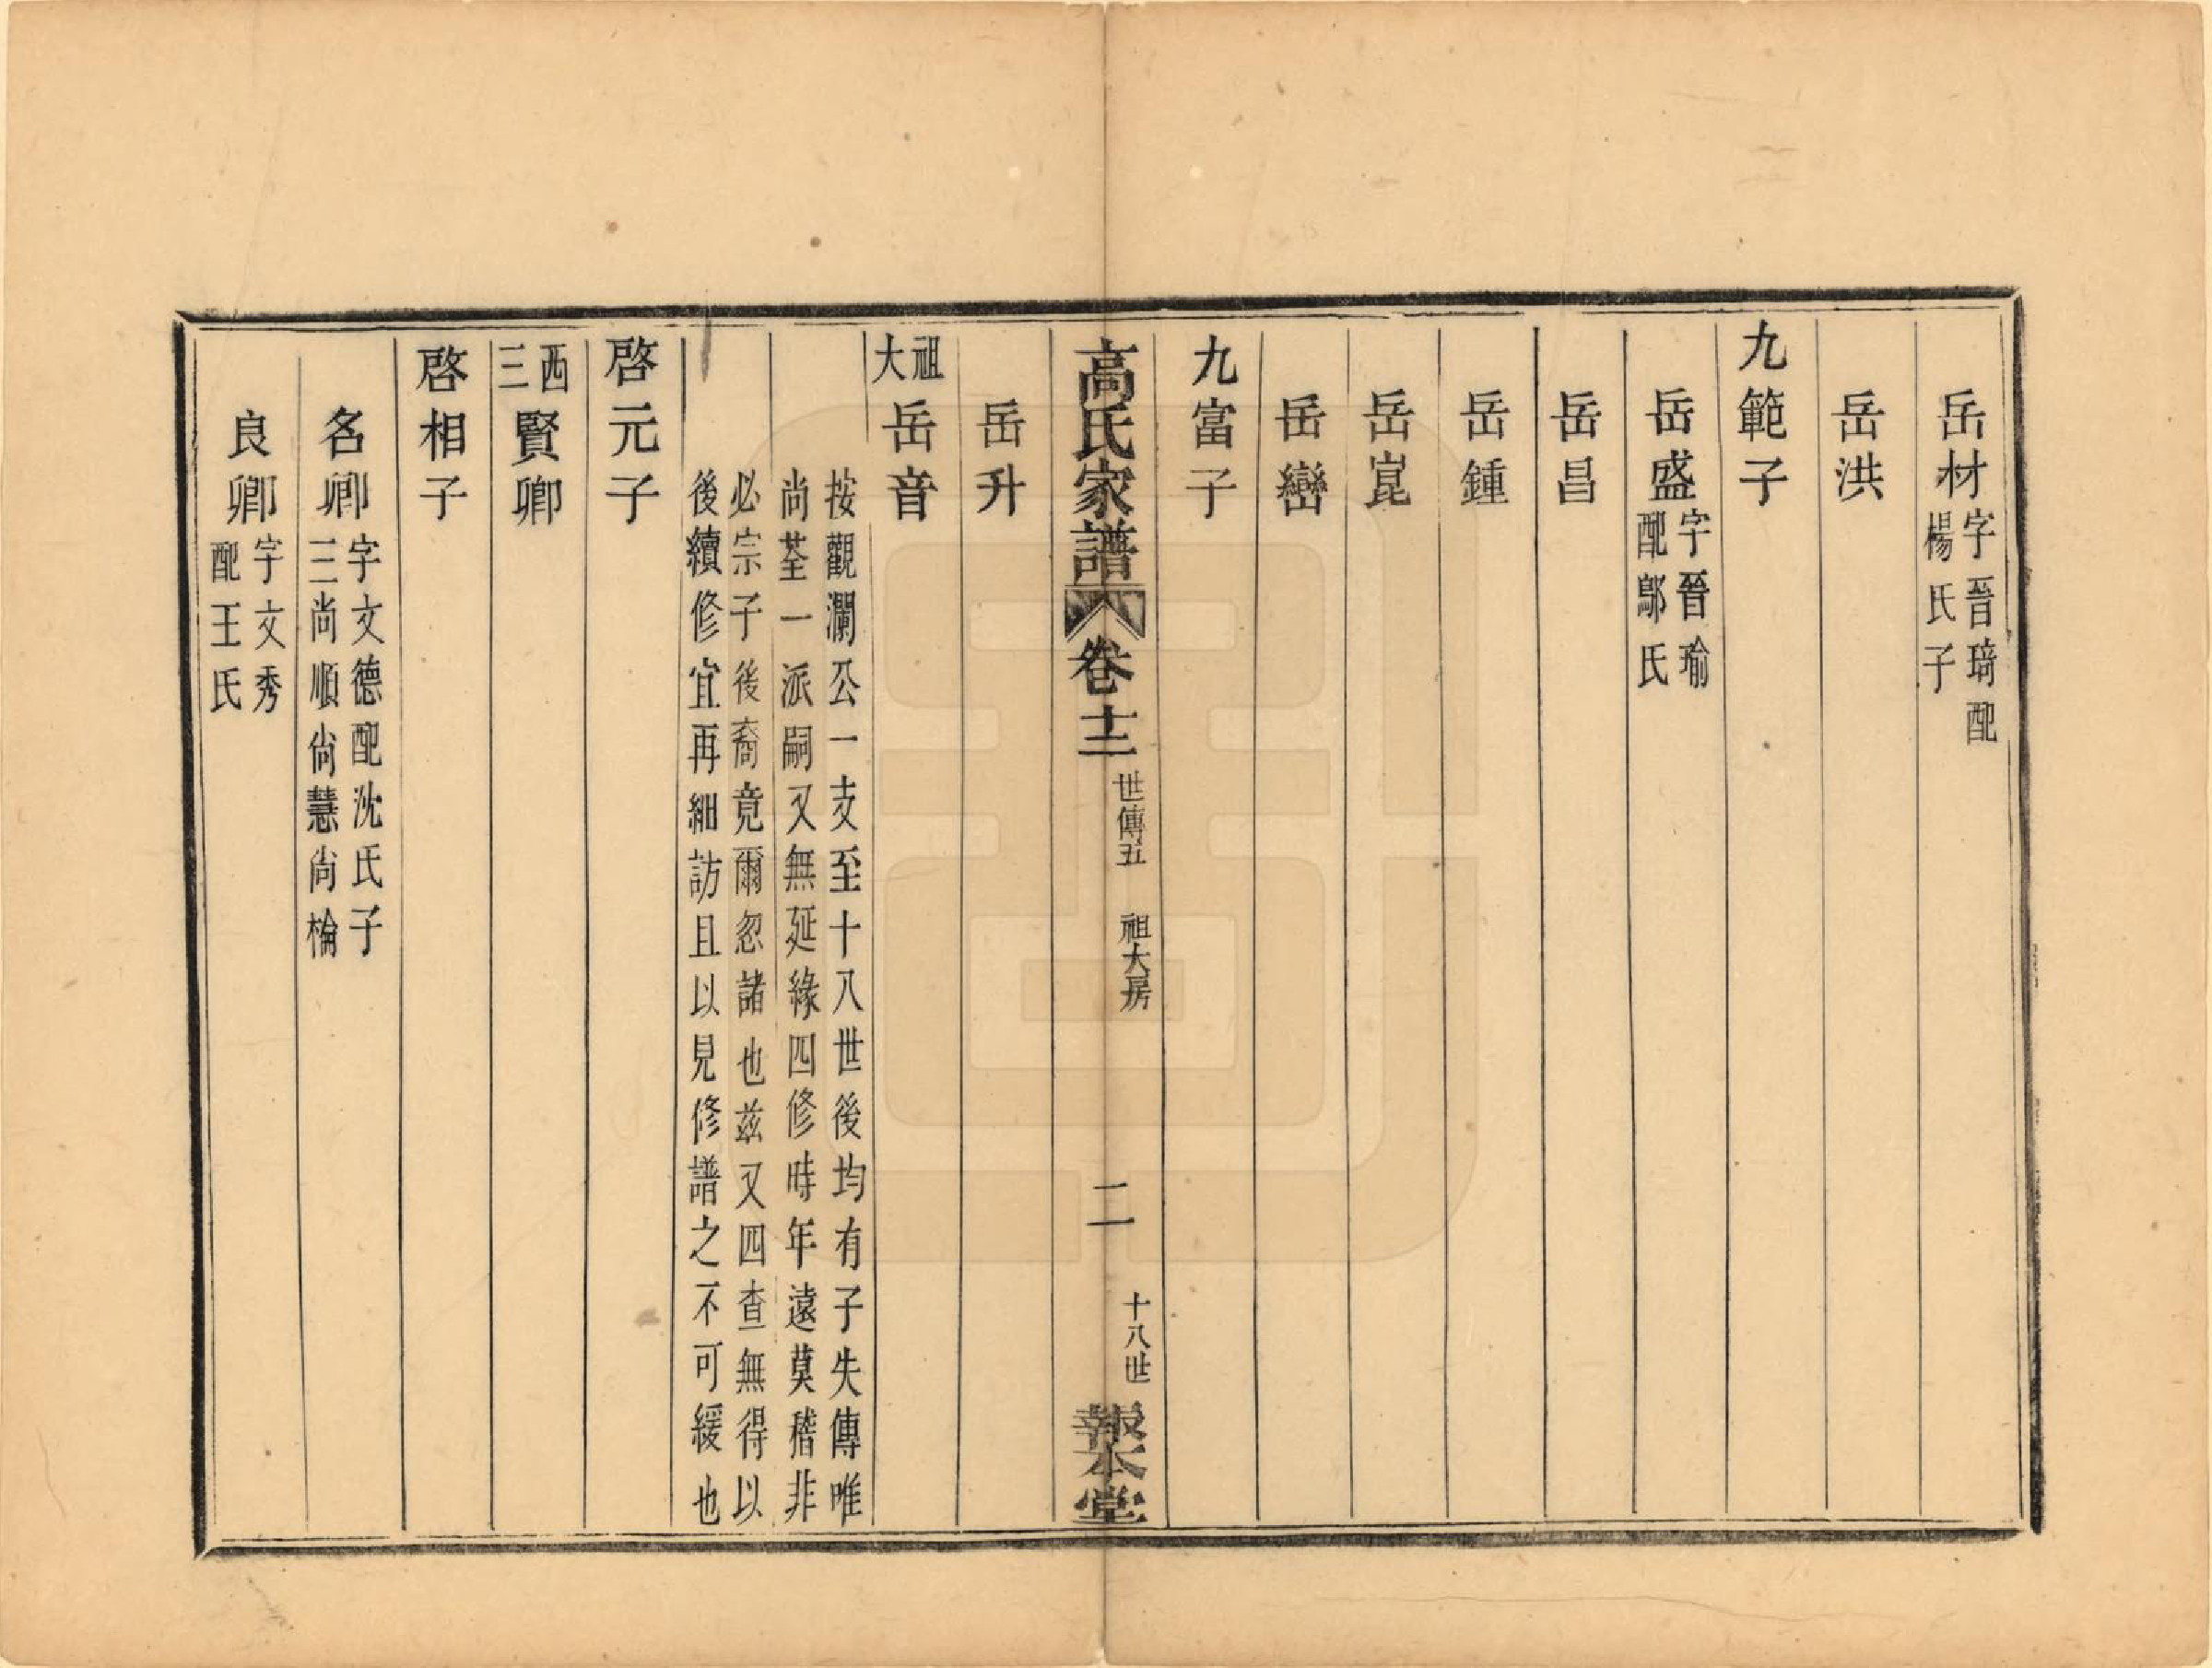 岳材字晉琦配
楊氏子
岳洪
九範子
岳盛字晉瑜
配鄔氏
岳昌
岳鍾
岳崑
岳巒
九富子
高氏家譜 卷十二 世傳五 祖大房 二 十八世 報本堂
岳升
祖大岳音
按觀瀾公一支至十八世後均有子失傳唯
尚荃一派嗣又無延緣四修時年遠莫稽非
必宗子後裔竟爾忽諸也茲又四查無得以
後續修宜再細訪且以見修譜之不可緩也
啓元子
西三賢卿
啓相子
名卿字文德配沈氏子
三尚順尚慧尚棆
良卿字文秀
配王氏